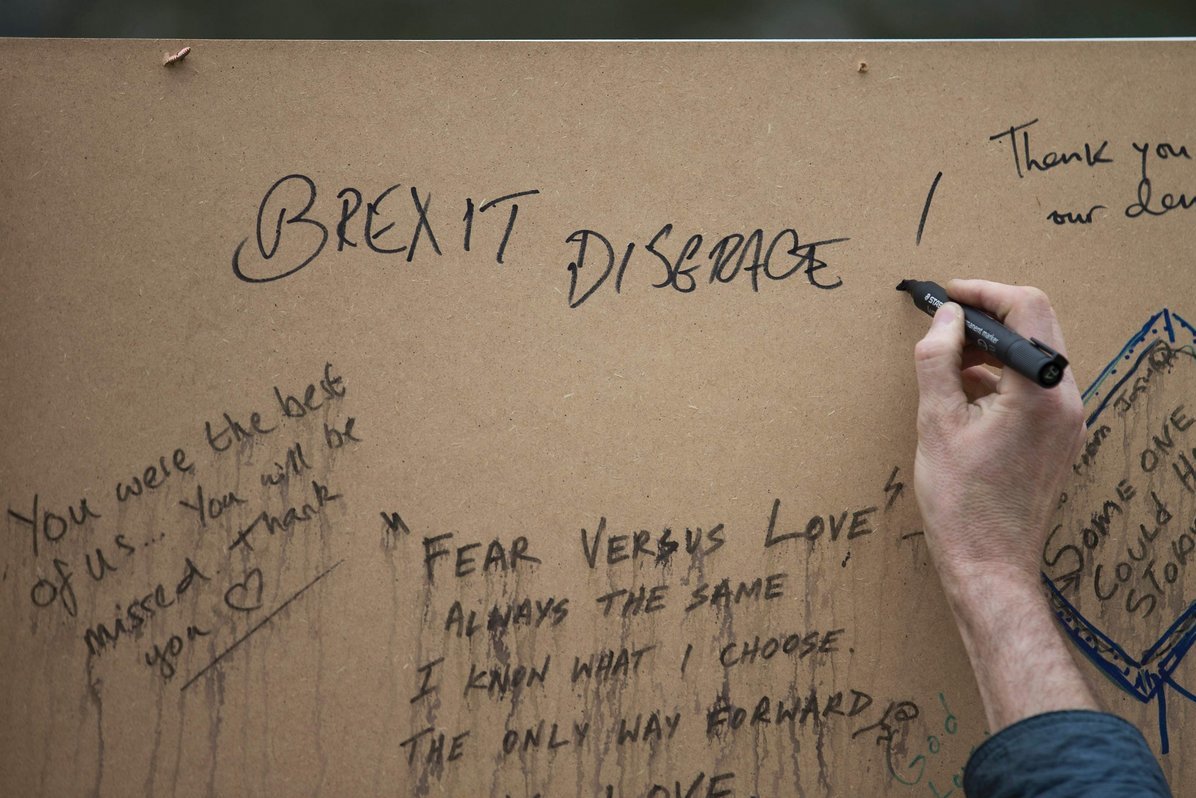 BREXIT DISGRACE !
Thank you
our
You were the best
of us... You will be
missed. Thank
you ♡
"FEAR VERSUS LOVE" -
ALWAYS THE SAME
I KNOW WHAT I CHOOSE.
THE ONLY WAY FORWARD
LOVE
SOME ONE
COULD
God
permanent marker